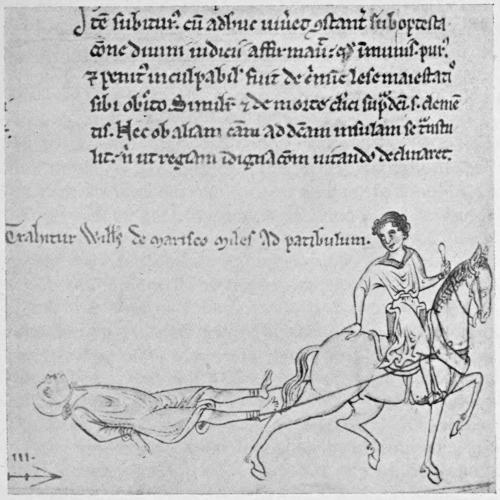 Itē subitur᾽. cū adhuc uiu᾽et ꝯstant᾽ sub optesta
cōne diuini iudicii affirmau᾽. immunis. pur᾽.
⁊ penit᾽ inculpabil᾽ fuit de c᾽mīe lese maiestatis
sibi ob᾽to. Simil᾽r ⁊ de morte cl᾽ici sup᾽dc̄i. s. clemē
tis. Nec ob aliam cām ad dc̄am insulam se t᾽nstu
lit. n᾽ ut regiam īdignacōm uitando declinaret.
Trahitur Will᾽s de marisco miles ad patibulum.
III.